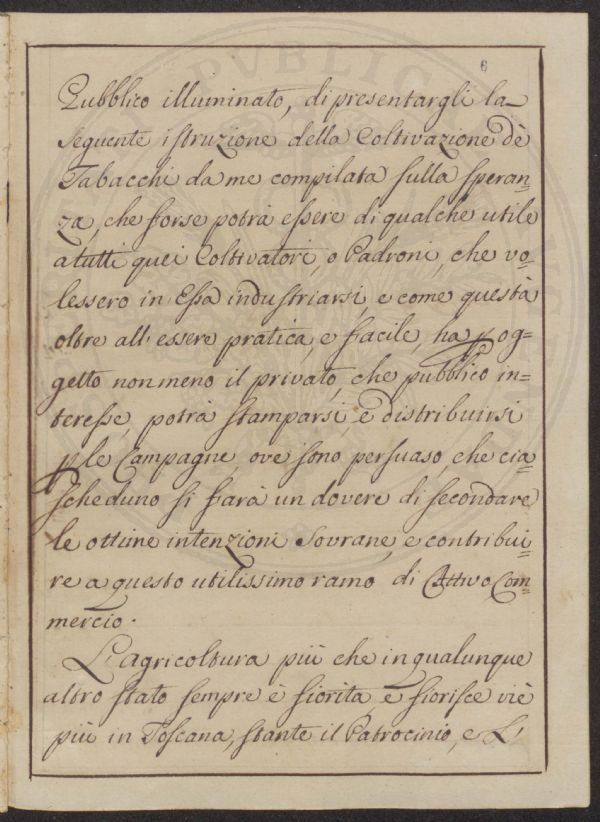 6
Pubblico illuminato, di presentargli la
seguente istruzione della Coltivazione dè
Tabacchi da me compilata sulla speran=
za, che forse potrà essere di qualche utile
a tutti quei Coltivatori, o Padroni, che vo=
lessero in Essa industriarsi, e come questa
oltre all' essere pratica, e facile, ha p og=
getto nonmeno il privato, che pubblico in=
teresse, potrà stamparsi, e distribuirsi
p le Campagne, ove sono persuaso, che cia=
scheduno si farà un dovere di secondare
le ottime intenzioni Sovrane, e contribui=
re a questo utilissimo ramo di Attivo Com=
mercio.
L'agricoltura più che in qualunque
altro stato sempre è fiorita, e fiorisce viè
più in Toscana, stante il Patrocinio, e L'